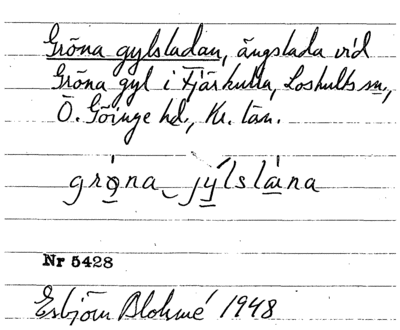 Gröna gylsladan, ängslada vid
Gröna gyl i Tjärkulla, Loshults sn,
Ö. Göinge hd, Kr. län.
grö̲na‿jý̲lsla̲na
Nr 5428
Esbjörn Blohmé 1948